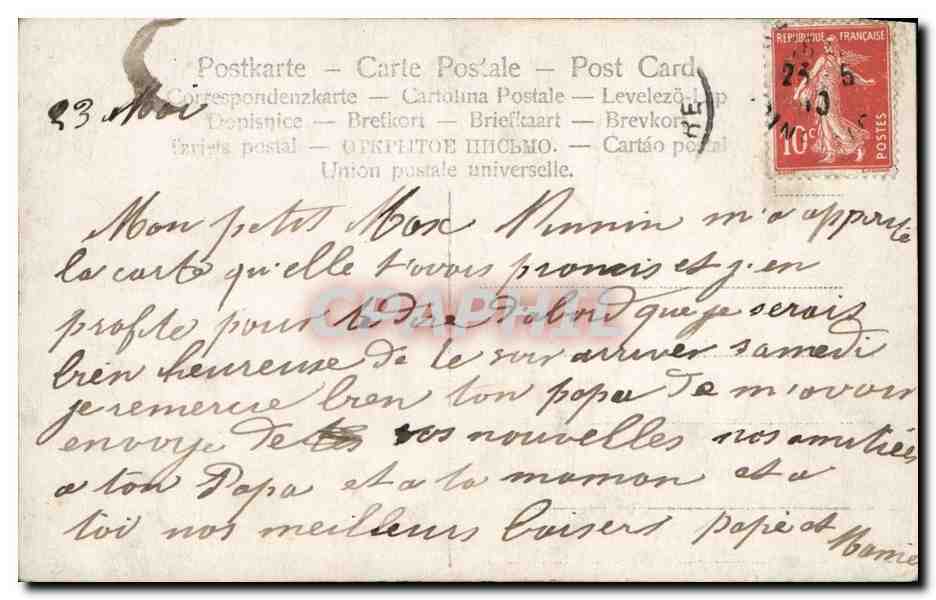 Postkarte – Carte Postale – Post Card
Correspondenzkarte – Cartolina Postale – Levelező-Lap
Dopisnice – Brefkort – Briefkaart – Brevkort
postal – ОТКРЫТОЕ ПИСЬМО. – Cartáo postal
Union postale universelle.
REPUBLIQUE FRANÇAISE
25 5
10
10c
POSTES
RE
23 Mai
Mon petit Max m'a apporté
la carte qu'elle t'avais promis et j'en
profite pour te dire d'abord que je serais
bien heureuse de te voir arriver samedi
je remercie bien ton papa de m'avoir
envoye de vos nouvelles nos amitiées
a ton Papa et a ta maman et a
toi nos meilleurs baisers papé et
Mamé
CPAPHIL